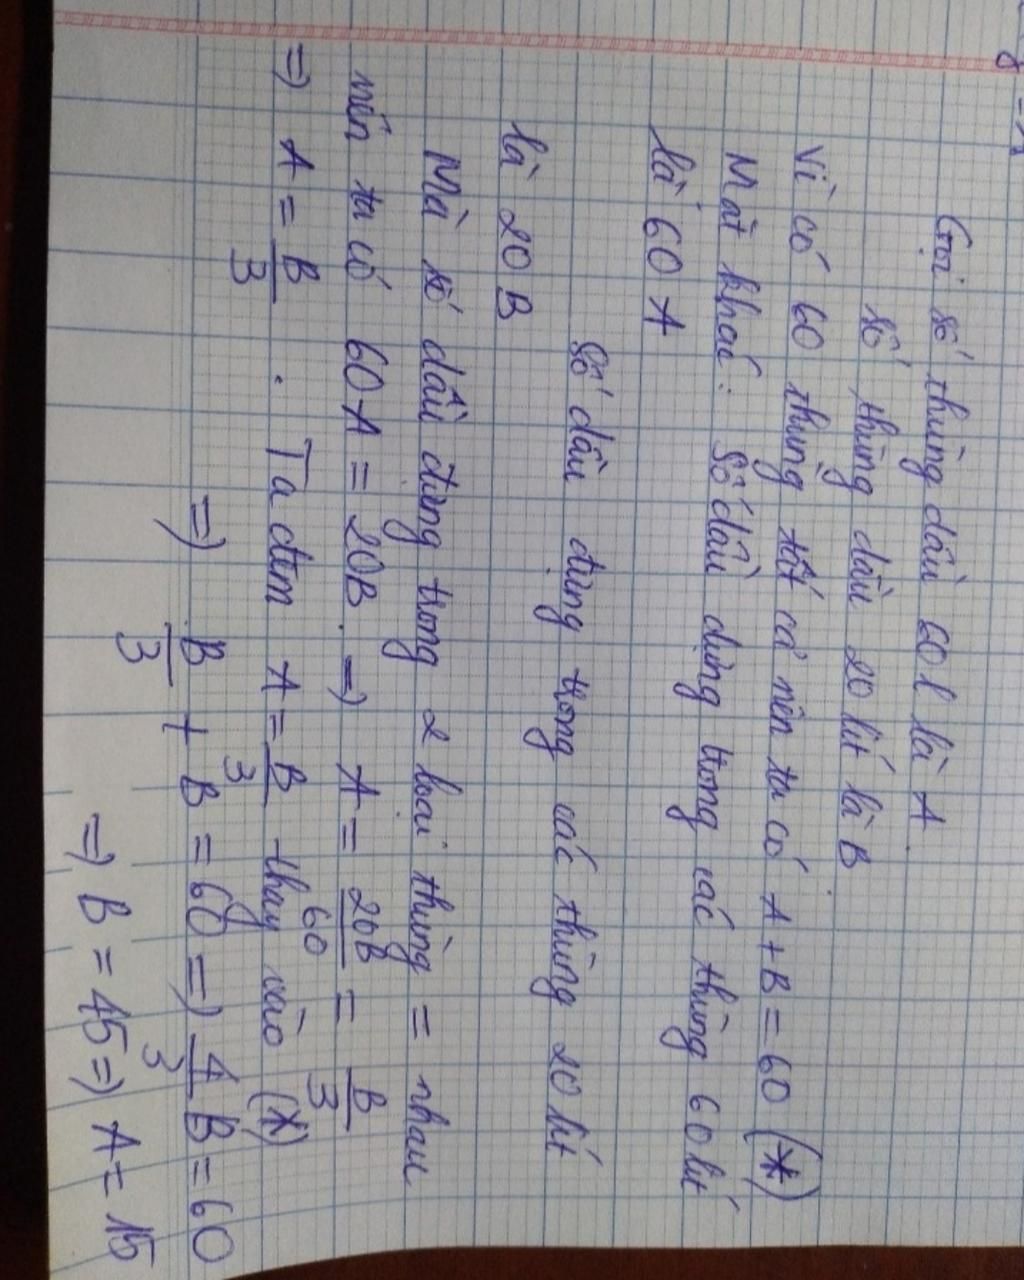 Gọi số thùng dầu 60l là A.
số thùng dầu 20 lít là B
Vì có 60 thùng tất cả nên ta có A + B = 60 (*)
Mặt khác: Số dầu đựng trong các thùng 60 lít
là 60 A
Số dầu đựng trong các thùng 20 lít
là 20 B
Mà số dầu đựng trong 2 loại thùng = nhau
nên ta có 60A = 20B. => A = 20B/60 = B/3
=> A = B/3 . Ta đem A = B/3 thay vào (*)
=> B/3 + B = 60 => 4/3 B = 60
=> B = 45 => A = 15